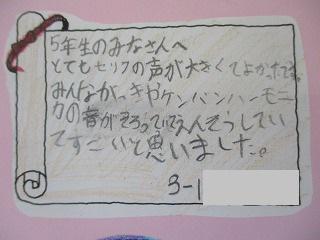 5年生のみなさんへ
とてもセリフの声が大きくてよかったです。
みんながっきやケンバンハーモニ
カの音がそろっていてえんそうしてい
てすごいと思いました。
3-1